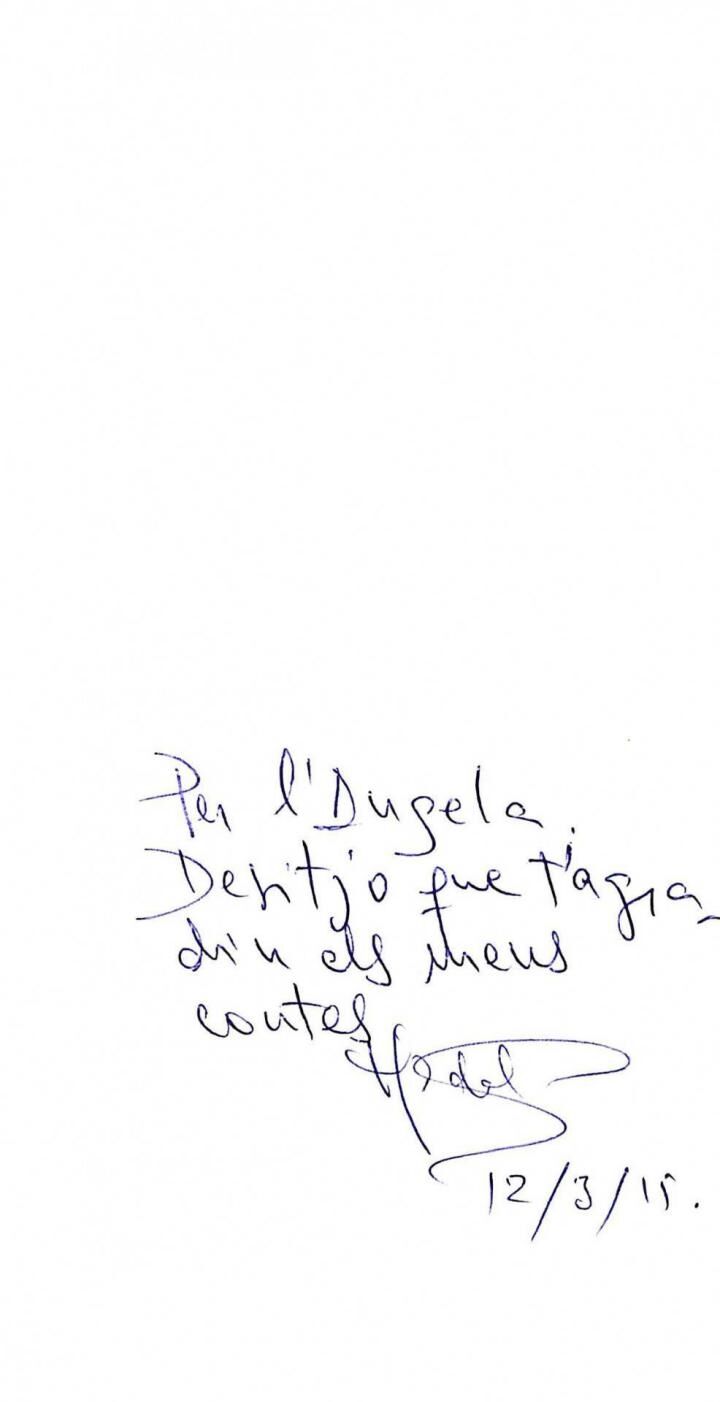 Per l'Àngela.
Desitjo que t'agra-
din els meus
contes
12/3/15.